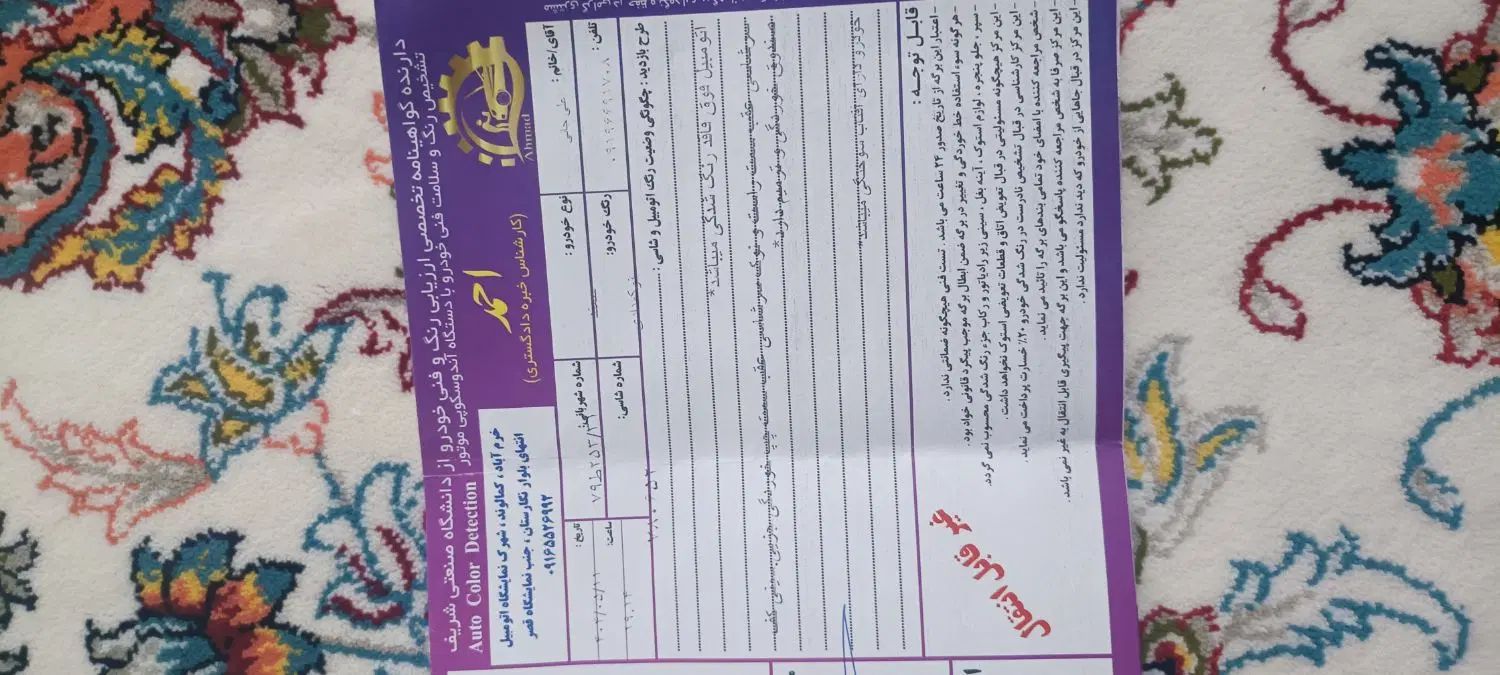 دارنده گواهینامه تخصصی ارزیابی رنگ و فنی خودرو از دانشگاه صنعتی شریف
تشخیص رنگ و سلامت فنی خودرو با دستگاه آندوسکوپی موتور Auto Color Detection
Ahmad
احمد
(کارشناس خبره دادگستری)
خرم آباد ، کمالوند ، شهرک نمایشگاه اتومبیل
انتهای بلوار نگارستان ، جنب نمایشگاه قصر
۰۹۱۶۵۵۲۶۹۹۲
آقای/خانم :
نوع خودرو :
شماره شهربانی:
تاریخ :
تلفن :
رنگ خودرو:
شماره شاسی:
ساعت:
۱۹:۱۴
طرح بازدید : چگونگی وضعیت رنگ اتومبیل و شاسی :
اتومبیل فوق فاقد رنگ شدگی میباشد*
صندوق خوردگی و ترمیم دارد*
خودرو دارای آفتاب سوختگی میباشد*
قابل توجه :
- اعتبار این برگه از تاریخ صدور ۲۴ ساعت می باشد . تست فنی هیچگونه ضمانتی ندارد .
- هر گونه سوء استفاده خط خوردگی و تغییر در برگه ضمن ابطال برگه موجب پیگرد قانونی خواد بود.
- سپر ، جلو پنجره ، لوازم استوک ، آینه بغل ، سینی زیر رادیاتور و رکاب جزء رنگ شدگی محسوب نمی گردد.
- این مرکز هیچگونه مسئولیتی در قبال تعویض اتاق و قطعات تعویضی استوک نخواهد داشت .
- این مرکز کارشناسی در قبال تشخیص نادرست در رنگ شدگی خودرو ۲۰٪ خسارت پرداخت می نماید .
- شخص مراجعه کننده با امضای خود تمامی بندهای برگه را تائید می نماید .
- این مرکز صرفا به شخص مراجعه کننده پاسخگو می باشد و این برگه جهت پیگیری قابل انتقال به غیر نمی باشد .
- این مرکز در قبال جاهایی از خودرو که دید ندارد مسئولیت ندارد .
غیر قابل انتقال